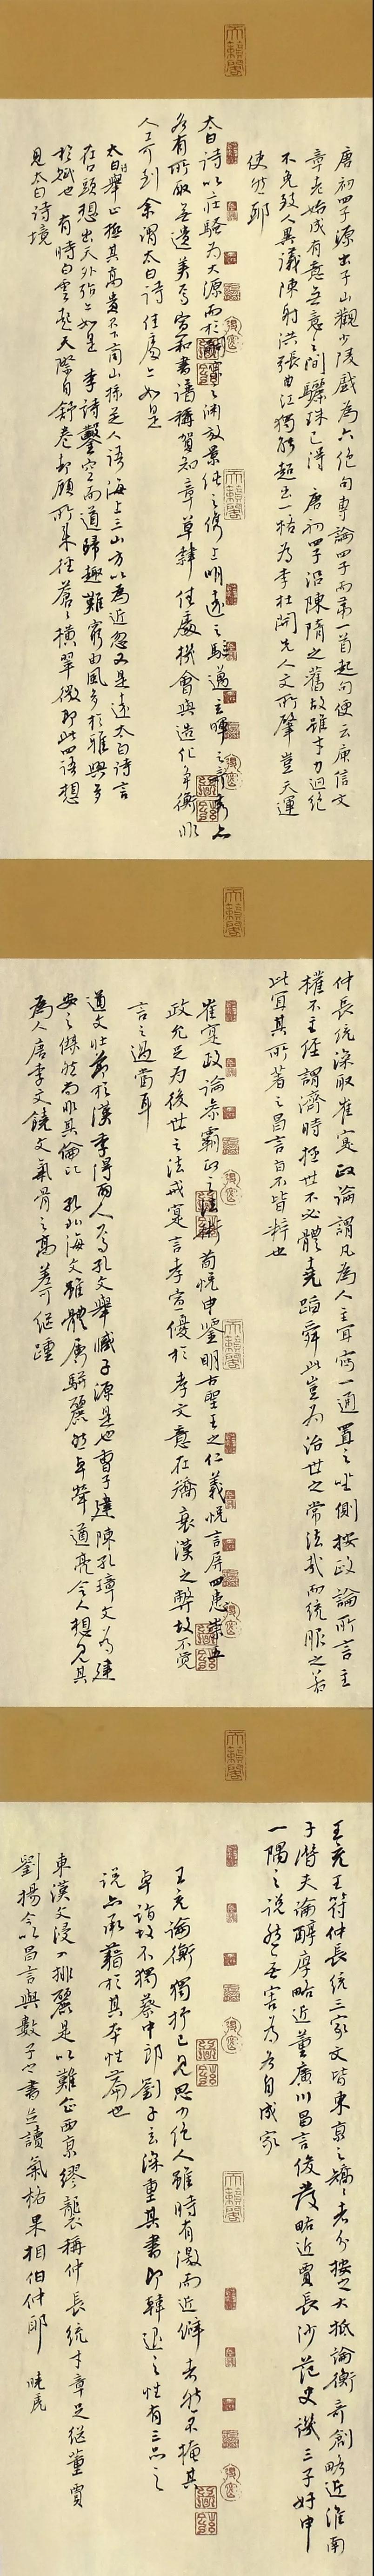 唐初四子源出子山觀少陵戲為六絕句專論四子而第一首起句便云庾信文
章老始成有意無意之間驪珠已得 唐初四子沿陳隋之舊故雖才力迥絕
不免致人異議陳射洪張曲江獨能超出一格為李杜開先人文所肇豈天運
使然耶
太白詩以莊騷為大源而於嗣宗之淵放景純之儁上明遠之驅邁玄暉之奇秀亦
各有所取無遺美焉 宣和書譜稱賀知章草隸佳處機會與造化爭衡非
人工可到余謂太白詩佳處亦如是
太白詩舉止極其高貴不下商山採芝人語 海上三山方以為近忽又是遠太白詩言
在口頭想出天外殆亦如是 李詩鑿空而道歸趣難窮由風多於雅興多
於賦也 有時白雲起天際自舒卷却顧所來徑蒼蒼橫翠微即此四語想
見太白詩境
仲長統深取崔寔政論謂凡為人主宜寫一通置之坐側按政論所言主
權不主經謂濟時拯世不必體堯蹈舜此豈為治世之常法哉而統服之若
此宜其所著之昌言自不皆粹也
崔寔政論參霸政之法術荀悅申鑒明古聖王之仁義悅言屏四患崇五
政允足為後世之法戒寔言孝宣優於孝文意在矯衰漢之弊故不覺
言之過當耳
遒文壯節於漢季得兩人焉孔文舉臧子源是也曹子建陳孔璋文為建
安之傑然尚非其倫比 孔北海文雖體屬駢麗然卓犖遒亮令人想見其
為人唐李文饒文氣骨之高差可繼踵
王充王符仲長統三家文皆東京之矯矯者分按之大抵論衡奇創略近淮南
子潛夫論醇厚略近董廣川昌言俊發略近賈長沙范史譏三子好申
一隅之說然無害為各自成家
王充論衡獨抒己見思力絕人雖時有激而近僻者然不掩其
卓詣故不獨蔡中郎劉子玄深重其書即韓退之性有三品之
說亦承藉於其本性篇也
東漢文浸入排麗是以難企西京繆襲稱仲長統才章足繼董賈
劉揚今以昌言與數子之書並讀氣格果相伯仲耶 曉虎